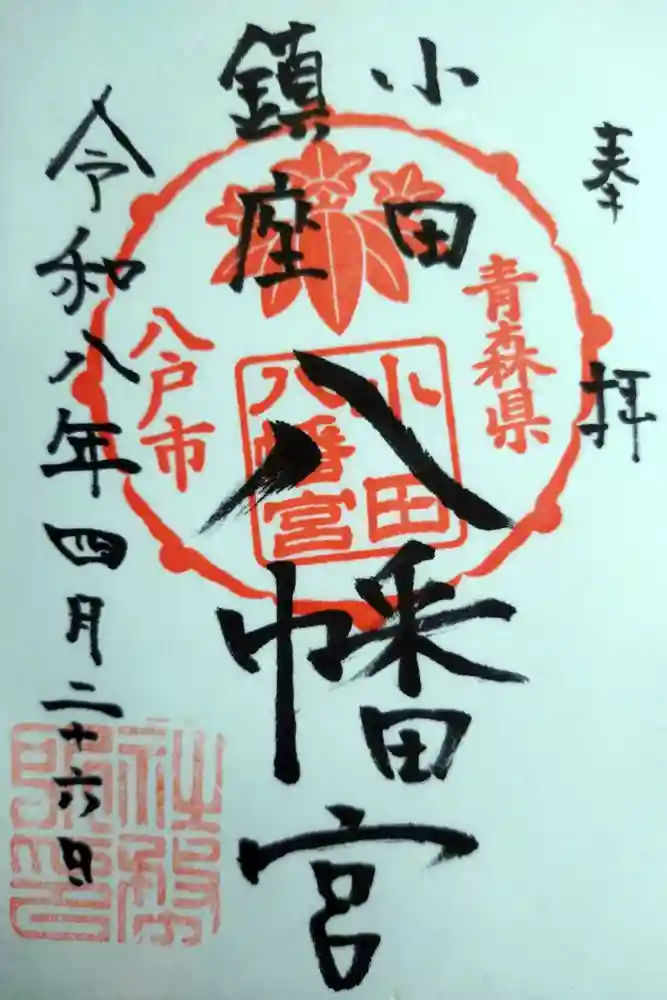 奉拝
小田
鎮座
八幡宮
令和八年四月二十六日
青森県
八戸市
小田
八幡宮
社務
所印